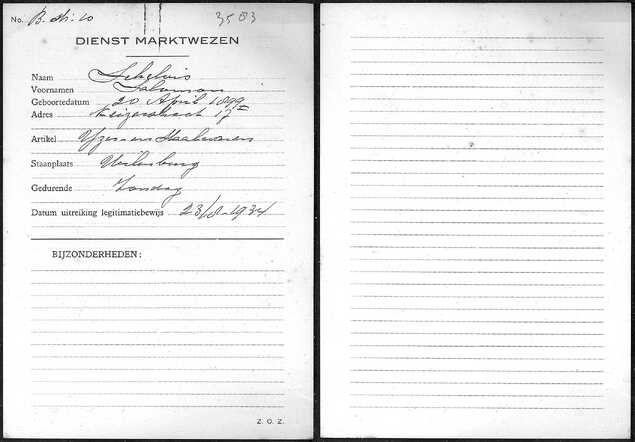 No. B. St. 20 3503
DIENST MARKTWEZEN
Naam Schelvis
Voornamen Salomon
Geboortedatum 20 April 1899
Adres Keizerstraat 17 II
Artikel IJzer en Staalwaren
Staanplaats Uilenburg
Gedurende Zondag
Datum uitreiking legitimatiebewijs 23/10-1934
BIJZONDERHEDEN:
Z. O. Z.